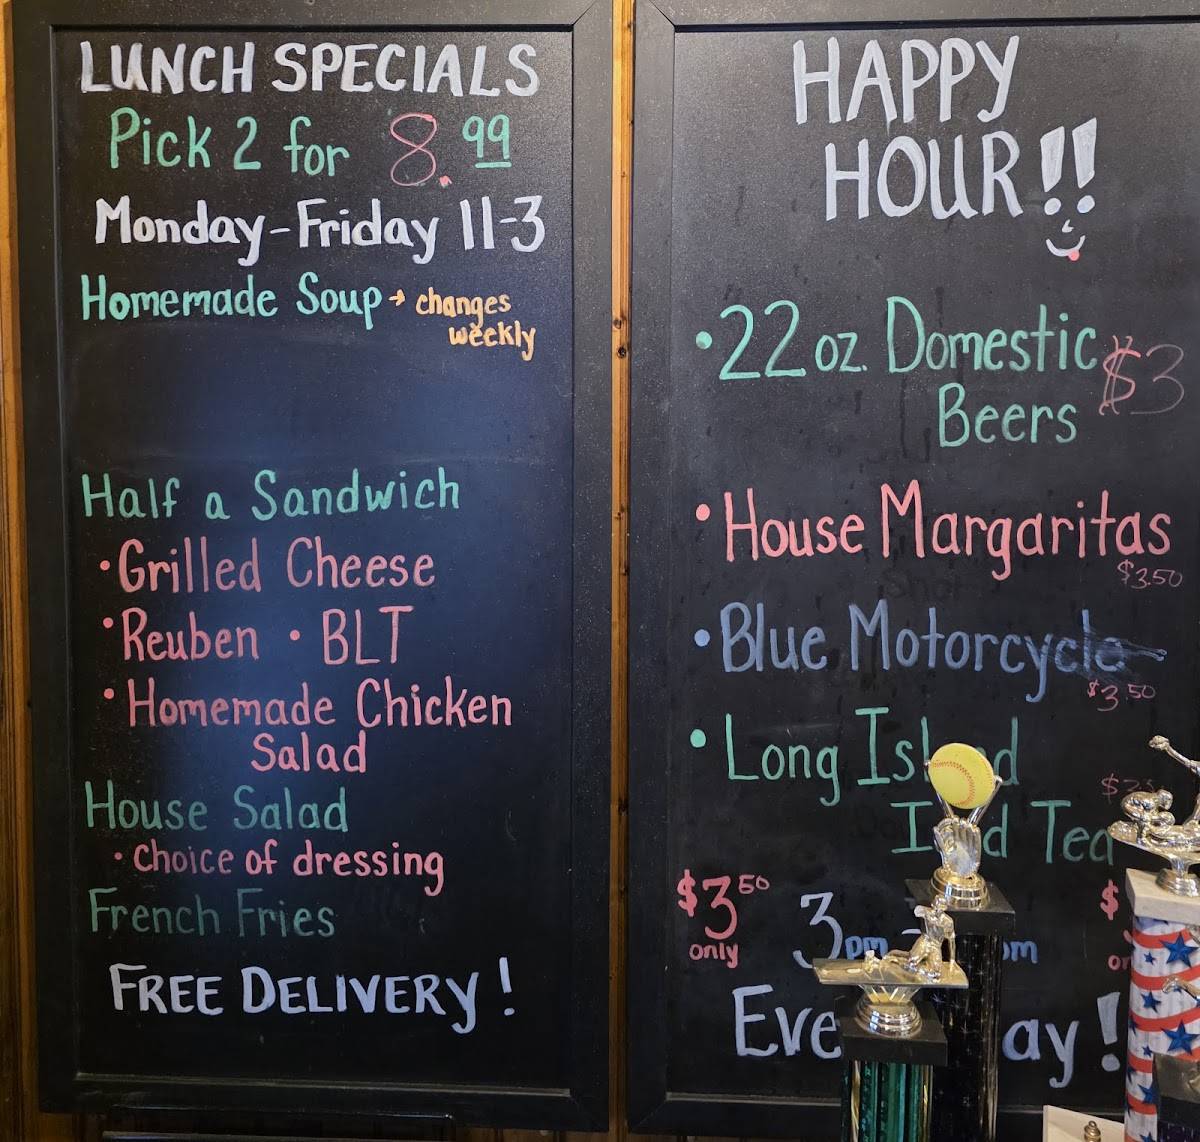 LUNCH SPECIALS
Pick 2 for 8.99
Monday-Friday 11-3
Homemade Soup → changes
weekly
Half a Sandwich
• Grilled Cheese
• Reuben • BLT
• Homemade Chicken
Salad
House Salad
• choice of dressing
French Fries
FREE DELIVERY!
HAPPY
HOUR!!
• 22 oz. Domestic $3
Beers
• House Margaritas
$3.50
• Blue Motorcycle
$3.50
• Long
Tea
$3.50 3pm
only